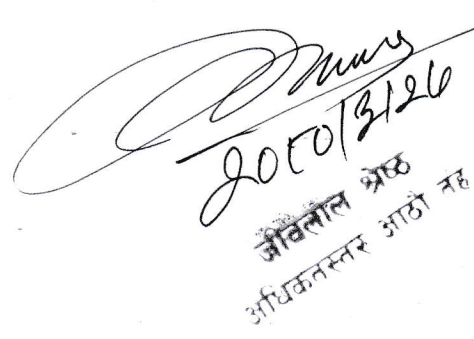 20८0/3/26
जीवलाल श्रेष्ठ
अधिकृतस्तर आठौं तह